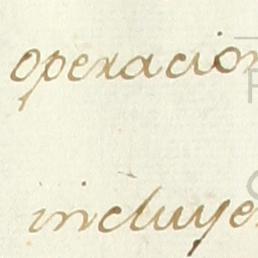 operacion
incluye